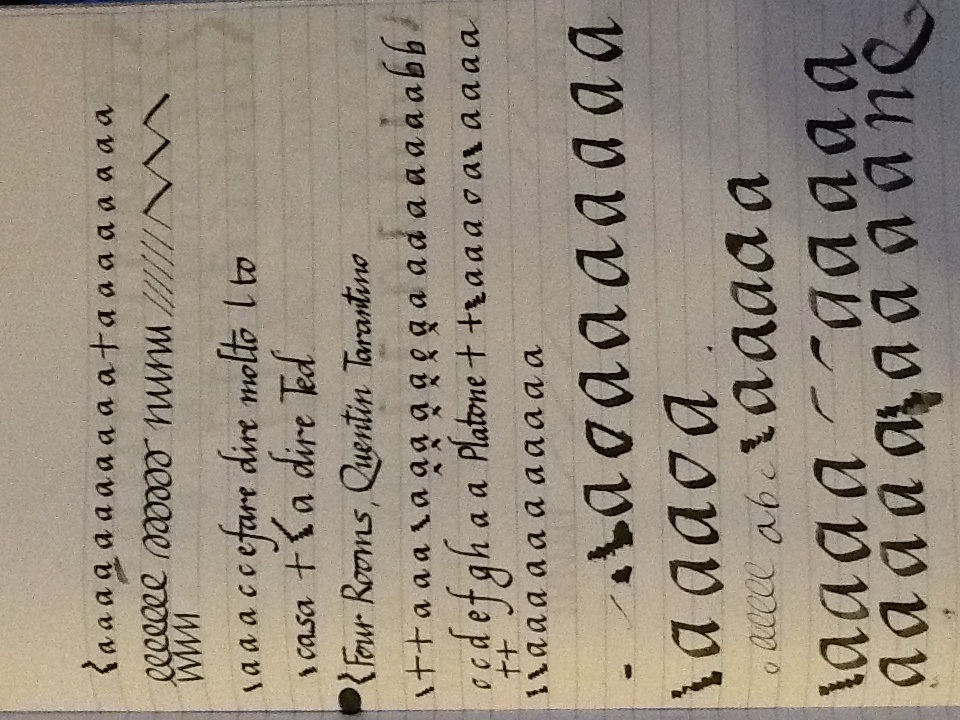 aaaaaaaaaa+aaaaaaaa
eeeeeee nunu //////
aaaccefare dire molto l to
casa + a dire Ted
Four Rooms, Quentin Tarantino
++aaa aaaaaeaaadaaaaabb
ccdefghaa Platone ++ aaaoa aaaa
++
aaaaaaaaaa
aoaaaaaaa
aaaoa
aeeee abc aaaaa
aaaa aaaaa
aaaaaaaaane